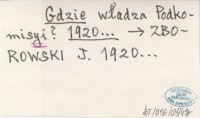 Gdzie władza Podko-
misyi? 1920... → ZBO-
ROWSKI J. 1920...